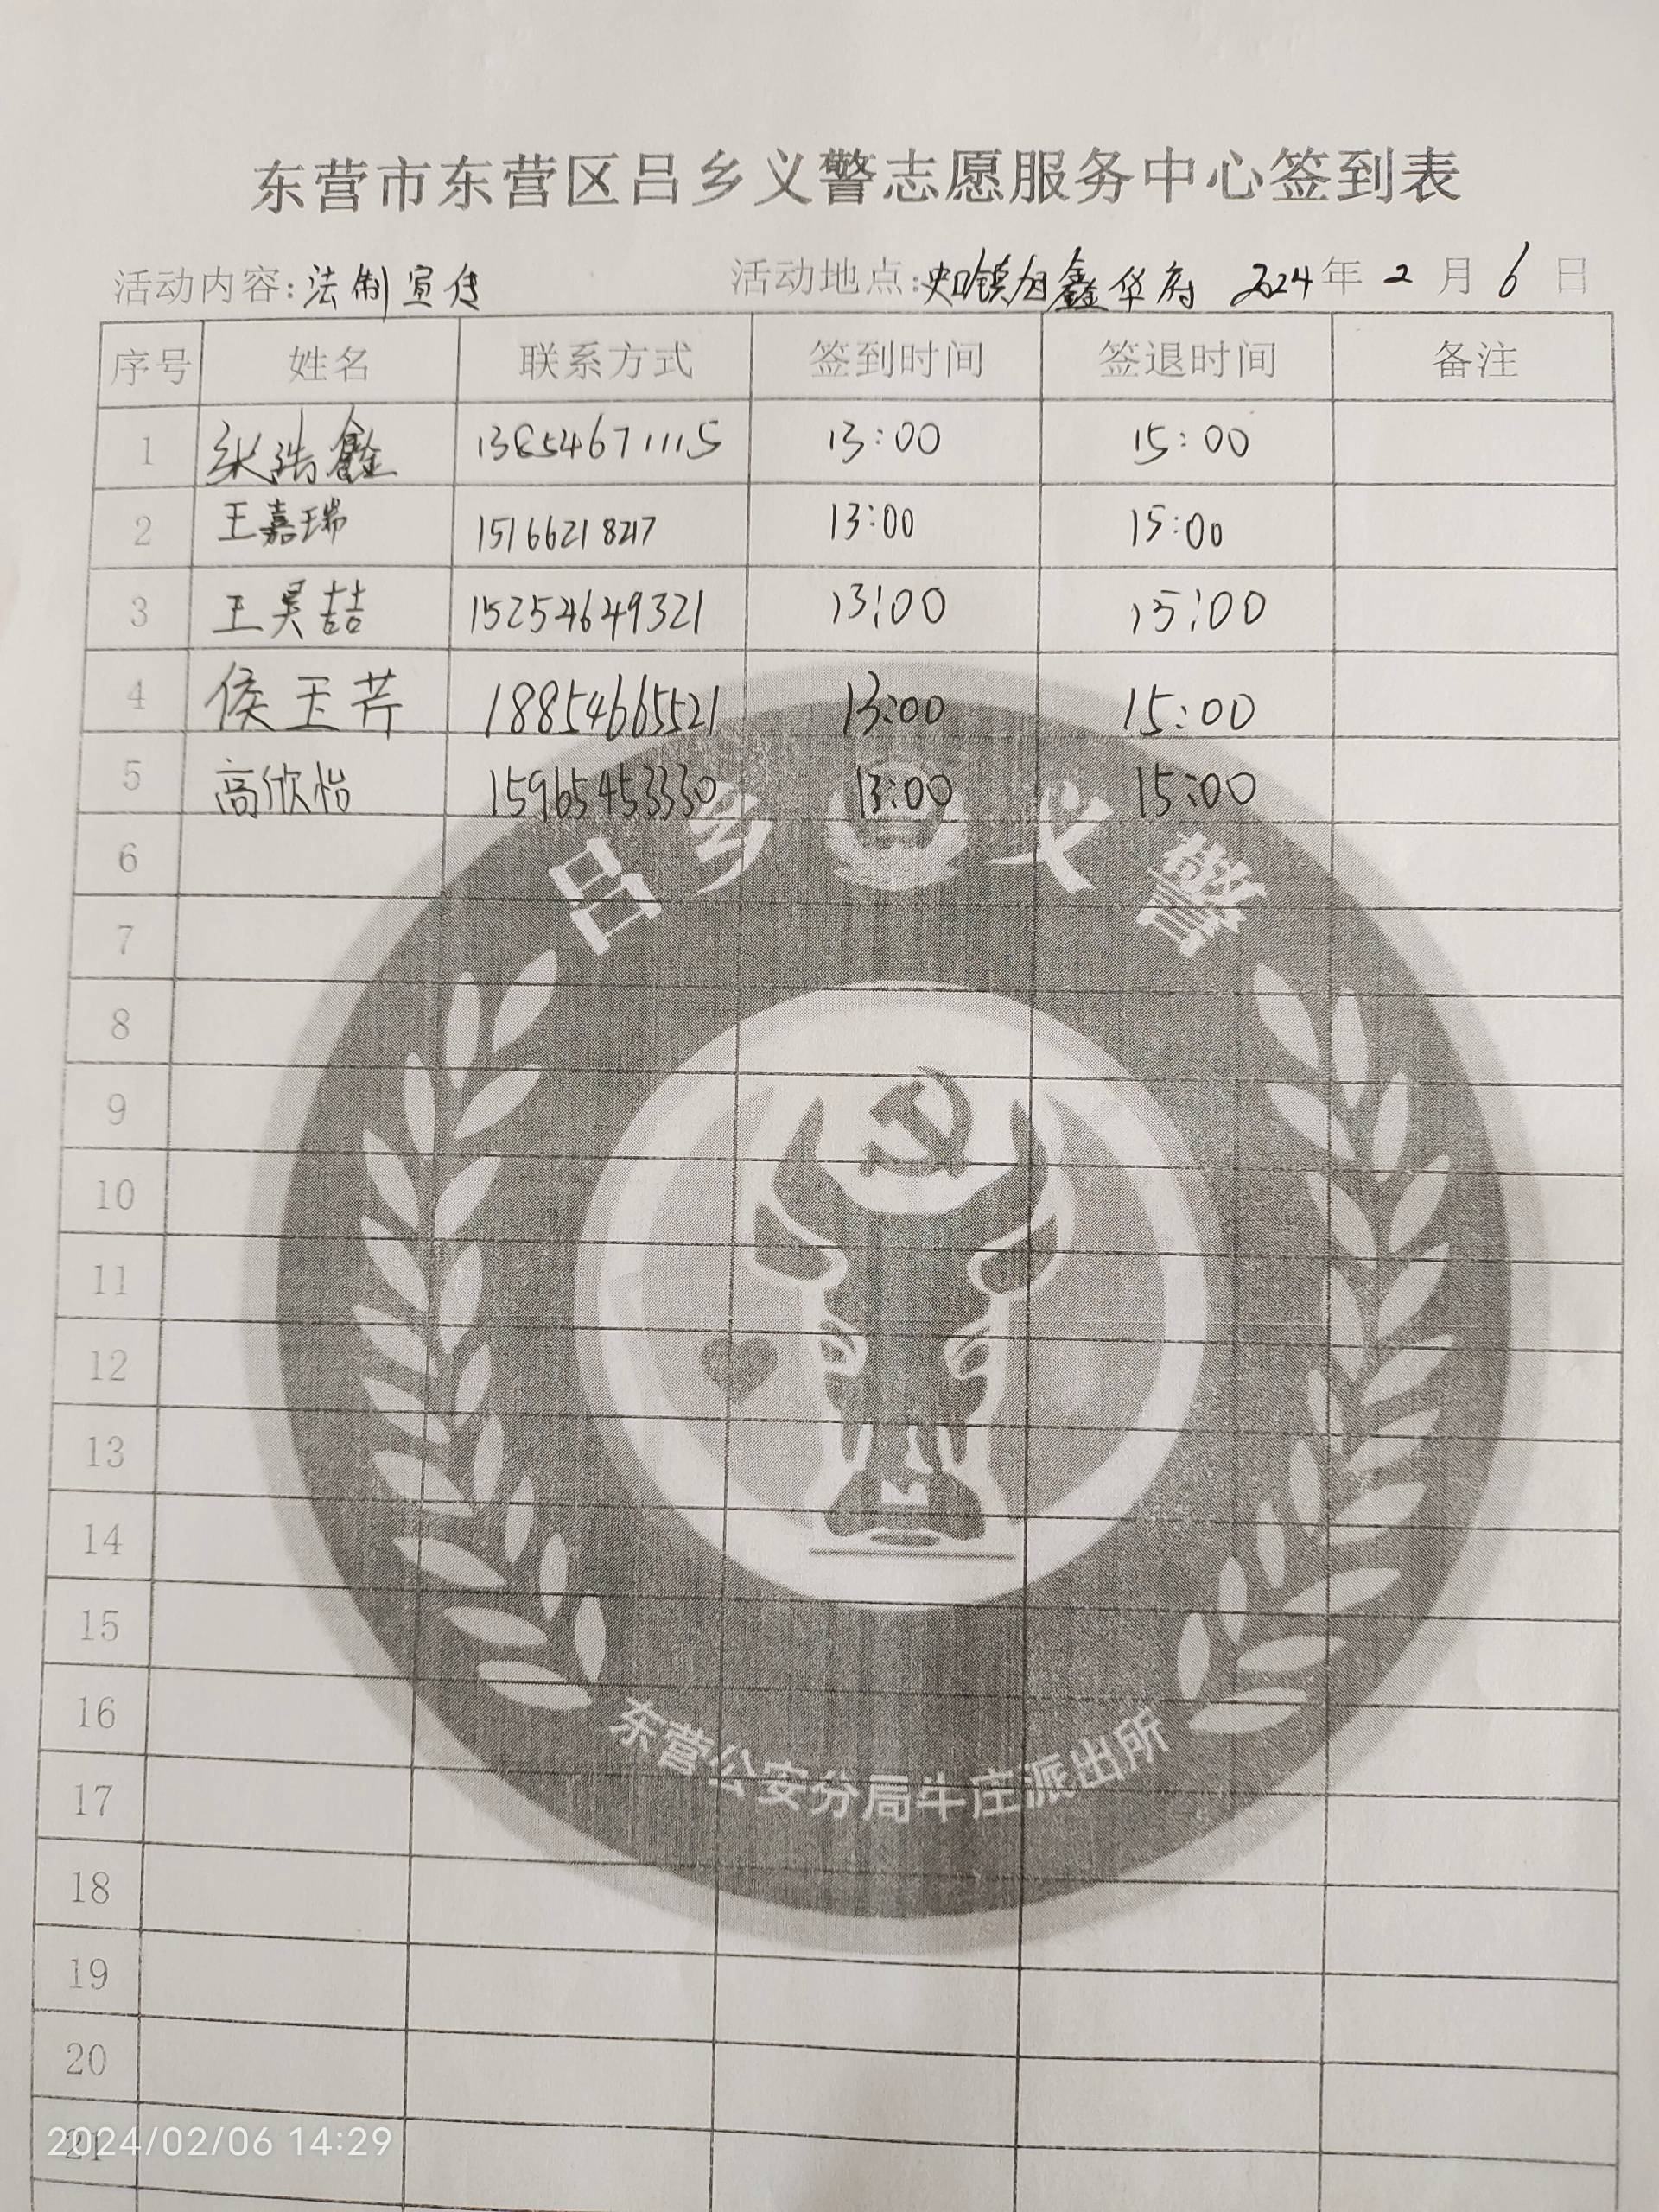 东营市东营区吕乡义警志愿服务中心签到表
活动内容:法制宣传 活动地点:史口镇旭鑫华府 2024年2月6日
序号 姓名 联系方式 签到时间 签退时间 备注
1 张浩鑫 13854671115 13:00 15:00
2 王嘉瑞 15166218217 13:00 15:00
3 王昊喆 15254649321 13:00 15:00
4 侯玉芹 18854665521 13:00 15:00
5 高欣怡 15965453330 13:00 15:00
6
吕乡义警
7
8
9
10
11
12
13
14
15
16
东营公安分局牛庄派出所
17
18
19
20
21
2024/02/06 14:29